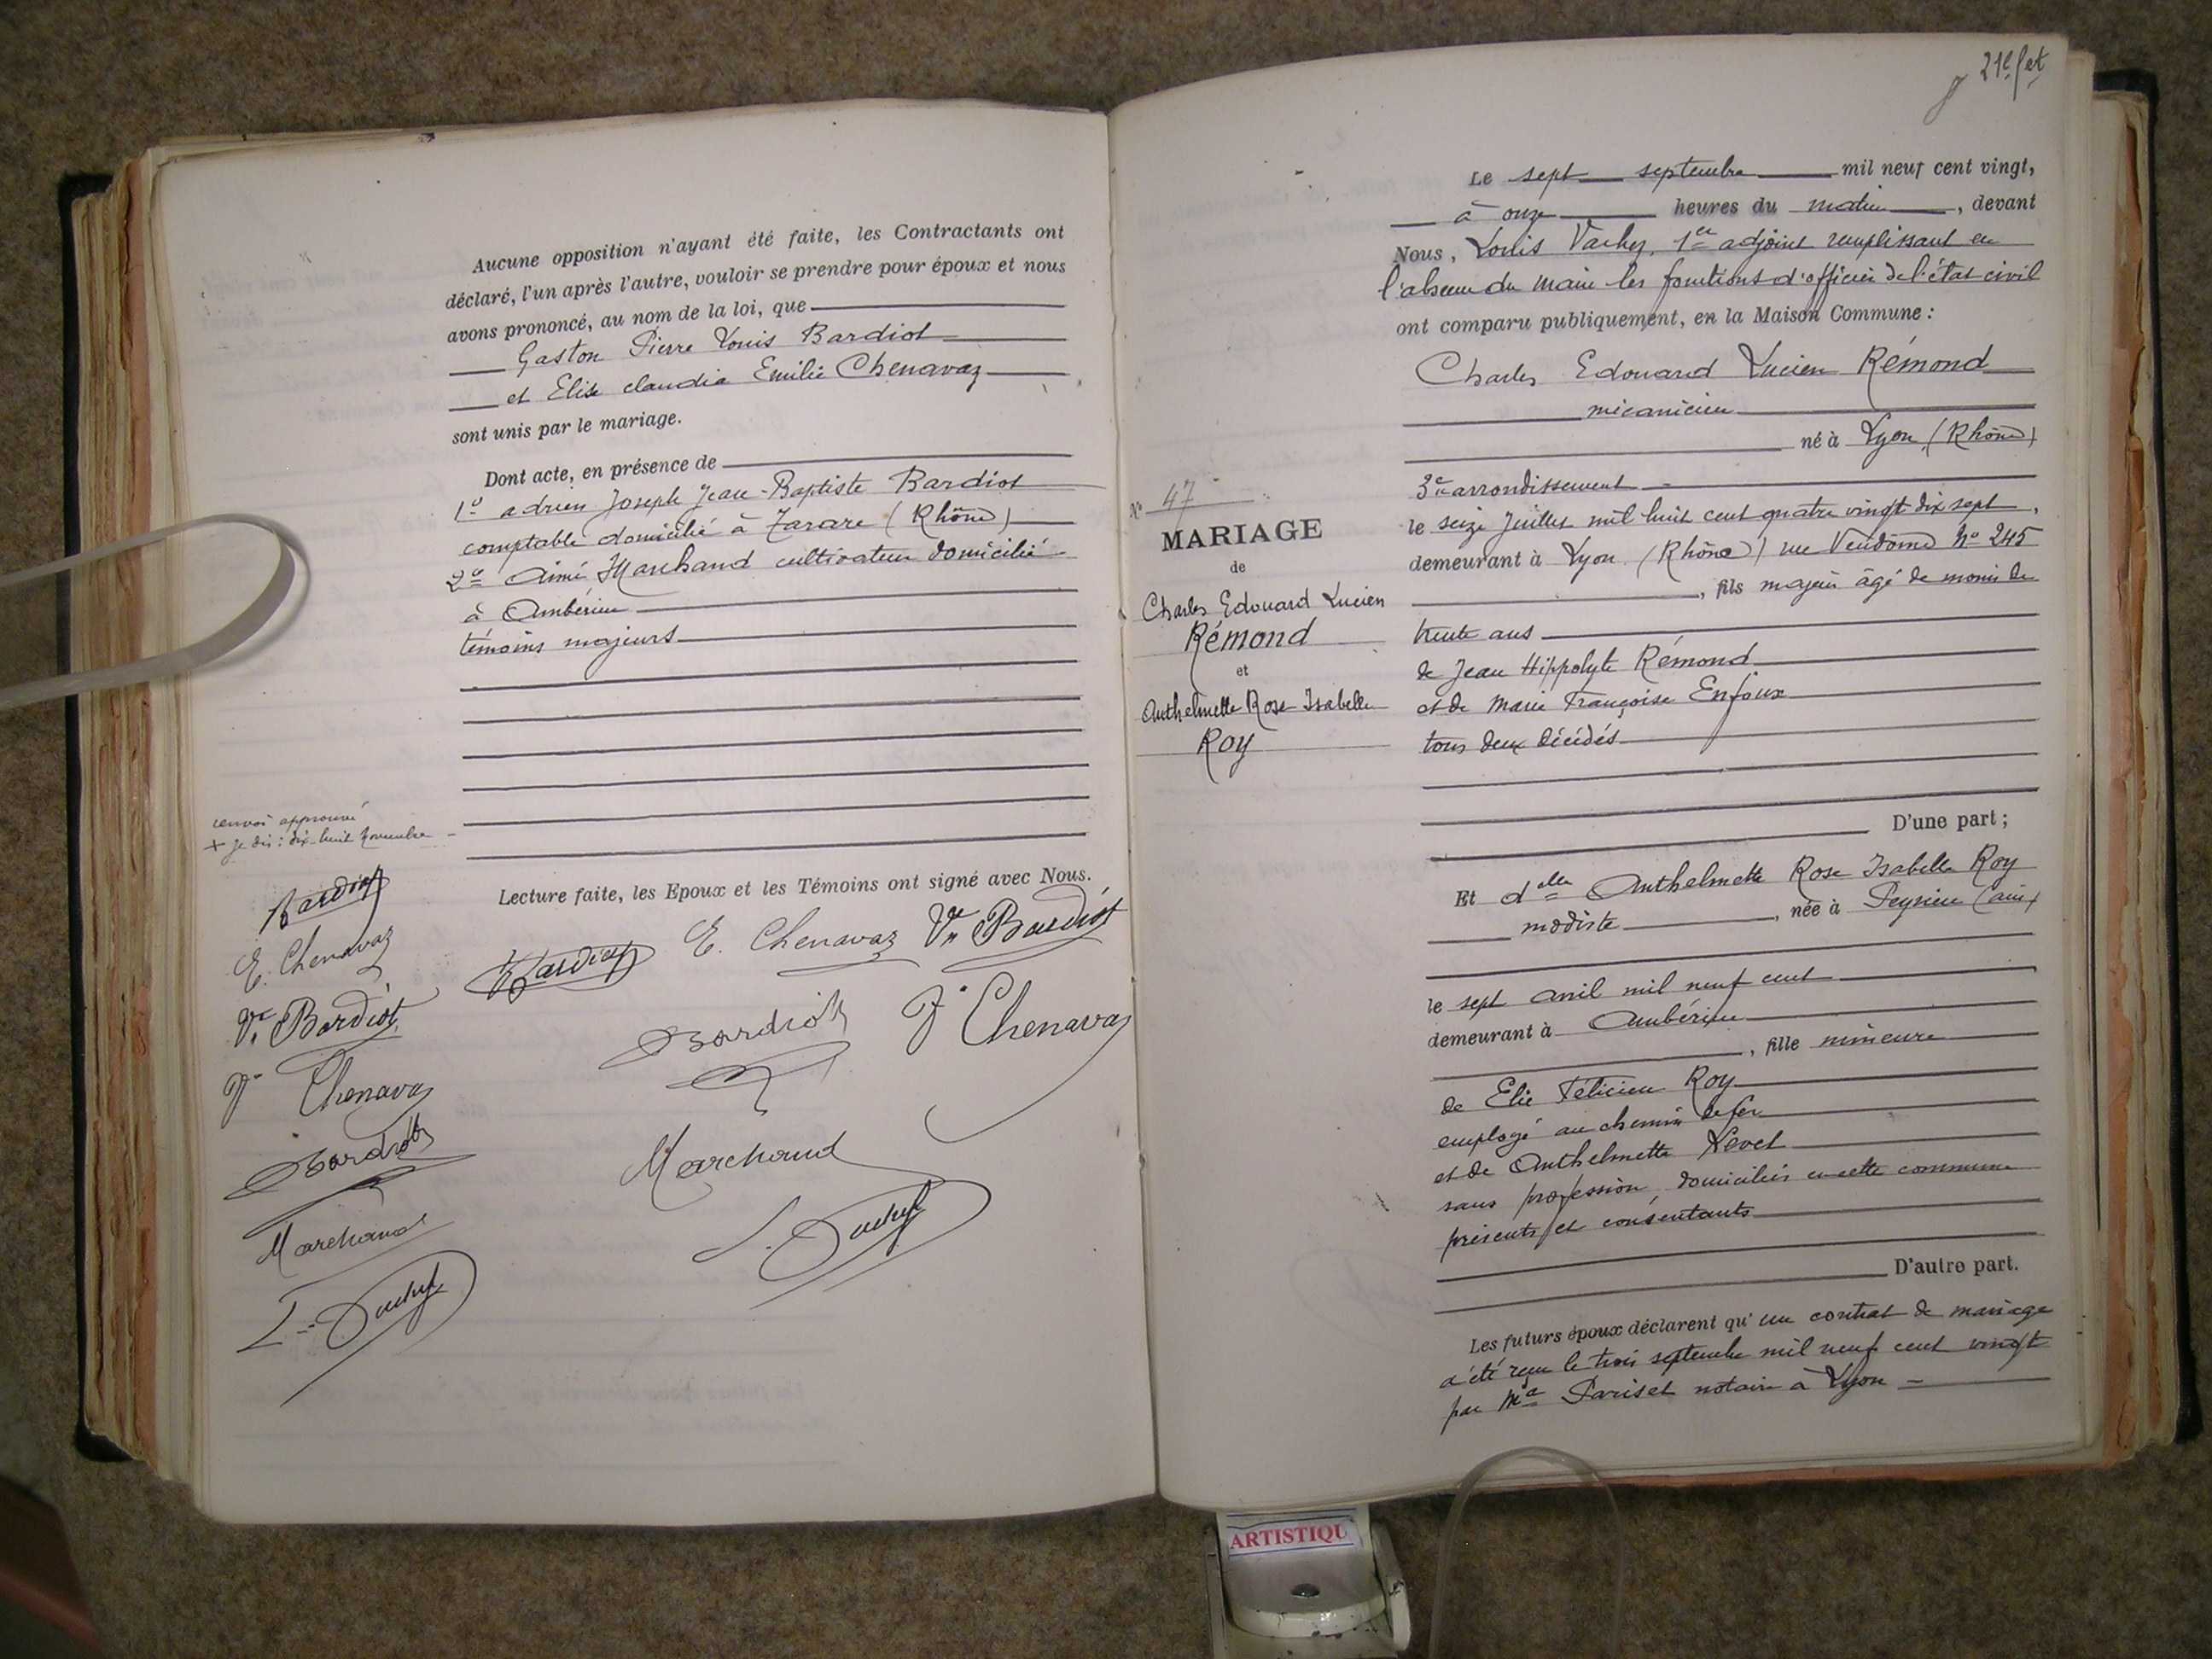 Aucune opposition n'ayant été faite, les Contractants ont
déclaré, l'un après l'autre, vouloir se prendre pour époux et nous
avons prononcé, au nom de la loi, que
Gaston Pierre Louis Bardiot
et Elise claudia Emilie Chenavaz
sont unis par le mariage.
Dont acte, en présence de
1º adrien Joseph Jean-Baptiste Bardiot
comptable domicilié à Tarare (Rhône)
2º Aimé Marchand cultivateur domicilié
à Ambérieu
témoins majeurs
renvoi approuvé
+ je dis : dix-huit Novembre
Lecture faite, les Epoux et les Témoins ont signé avec Nous.
Bardiot
E. Chenavaz
Vve Bardiot
Bardiot
J Chenavaz
Marchand
Bardiot
E. Chenavaz
Vve Bardiot
J Chenavaz
Bardiot
Marchand
21e fet
Le sept septembre mil neuf cent vingt,
à onze heures du matin, devant
Nous, Louis 1er adjoint remplissant en
l'absence du maire les fonctions d'officier de l'état civil
ont comparu publiquement, en la Maison Commune :
Charles Edouard Lucien Rémond
mécanicien
né à Lyon (Rhône)
3e arrondissement
le seize Juillet mil huit cent quatre vingt dix sept,
demeurant à Lyon (Rhône) rue Vendôme Nº 245
, fils majeur âgé de moins de
trente ans
de Jean Hippolyte Rémond
et de Marie Françoise Enjoux
tous deux décédés
D'une part ;
Nº 47
MARIAGE
de
Charles Edouard Lucien
Rémond
et
Anthelmette Rose Isabelle
Roy
Et delle Anthelmette Rose Isabelle Roy
modiste, née à Peyrieu (ain)
le sept avril mil neuf cent
demeurant à Ambérieu
, fille mineure
de Elie Félicien Roy
employé au chemin de fer
et de Anthelmette Nevet
sans profession, domiciliés en cette commune
présents et consentants
D'autre part.
Les futurs époux déclarent qu'un contrat de mariage
a été reçu le trois septembre mil neuf cent vingt
par Me Pariset notaire à Lyon
ARTISTIQU